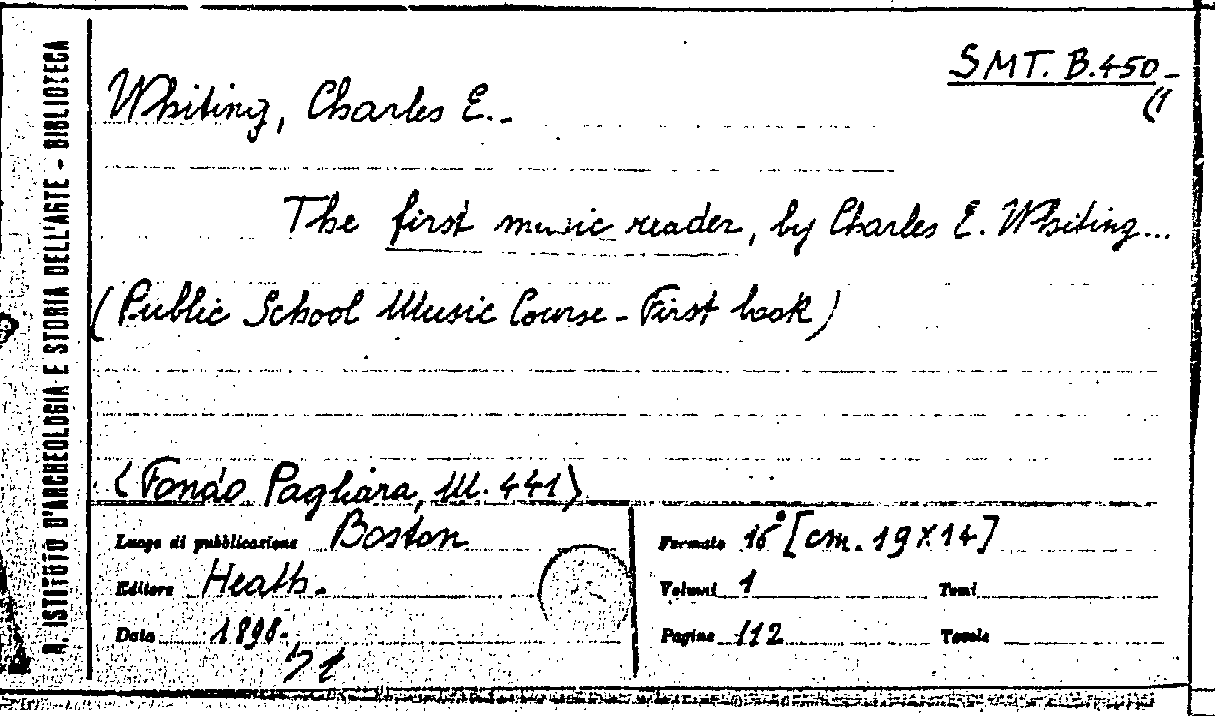 R. ISTITUTO D'ARCHEOLOGIA E STORIA DELL'ARTE - BIBLIOTECA
SMT. B.450-
Whiting, Charles E.-
The first music reader, by Charles E. Whiting...
(Public School Music Course - First book)
(Fondo Pagliara, M. 441)
Luogo di pubblicazione Boston
Editore Heath.
Data 1898.
Formato 16° [cm. 19X14]
Volumi 1 Tomi
Pagine 112 Tavole